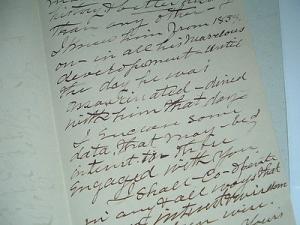 history & better
than any other
I knew him from 1838
on - in all his marvelous
development until
the day he was
assassinated - dined
with him that day
I enclose some
data that may - be of
interest to those
engaged with you
I shall Co-operate
in any & all ways that
interest
Yours